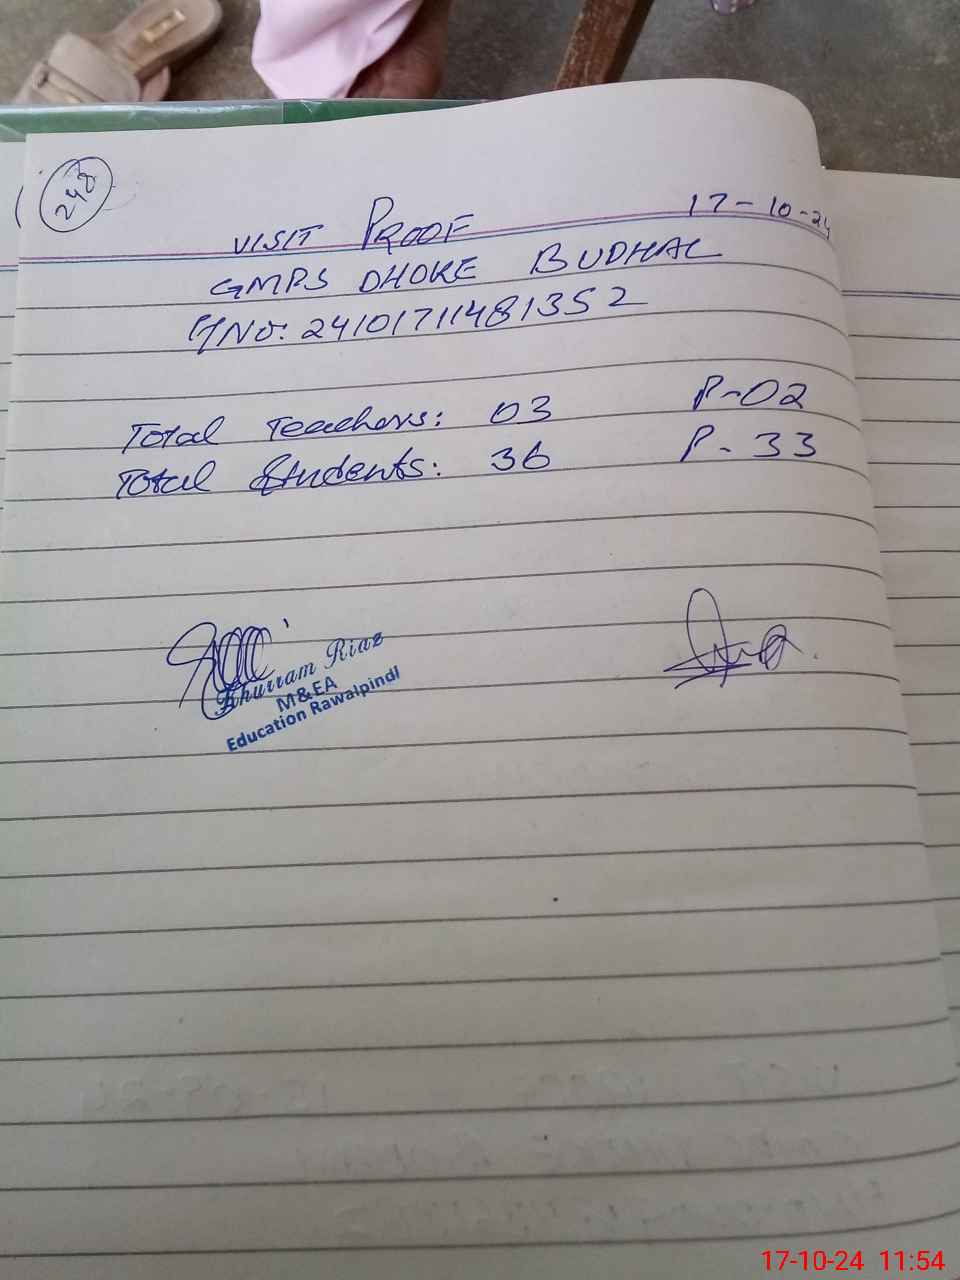 248
17-10-24
VISIT PROOF
GMPS DHOKE BUDHAL
24101711481352
Total Teachers: 03 P-02
Total Students: 36 P-33
Khurram Riaz
M&EA
Education Rawalpindi
17-10-24 11:54